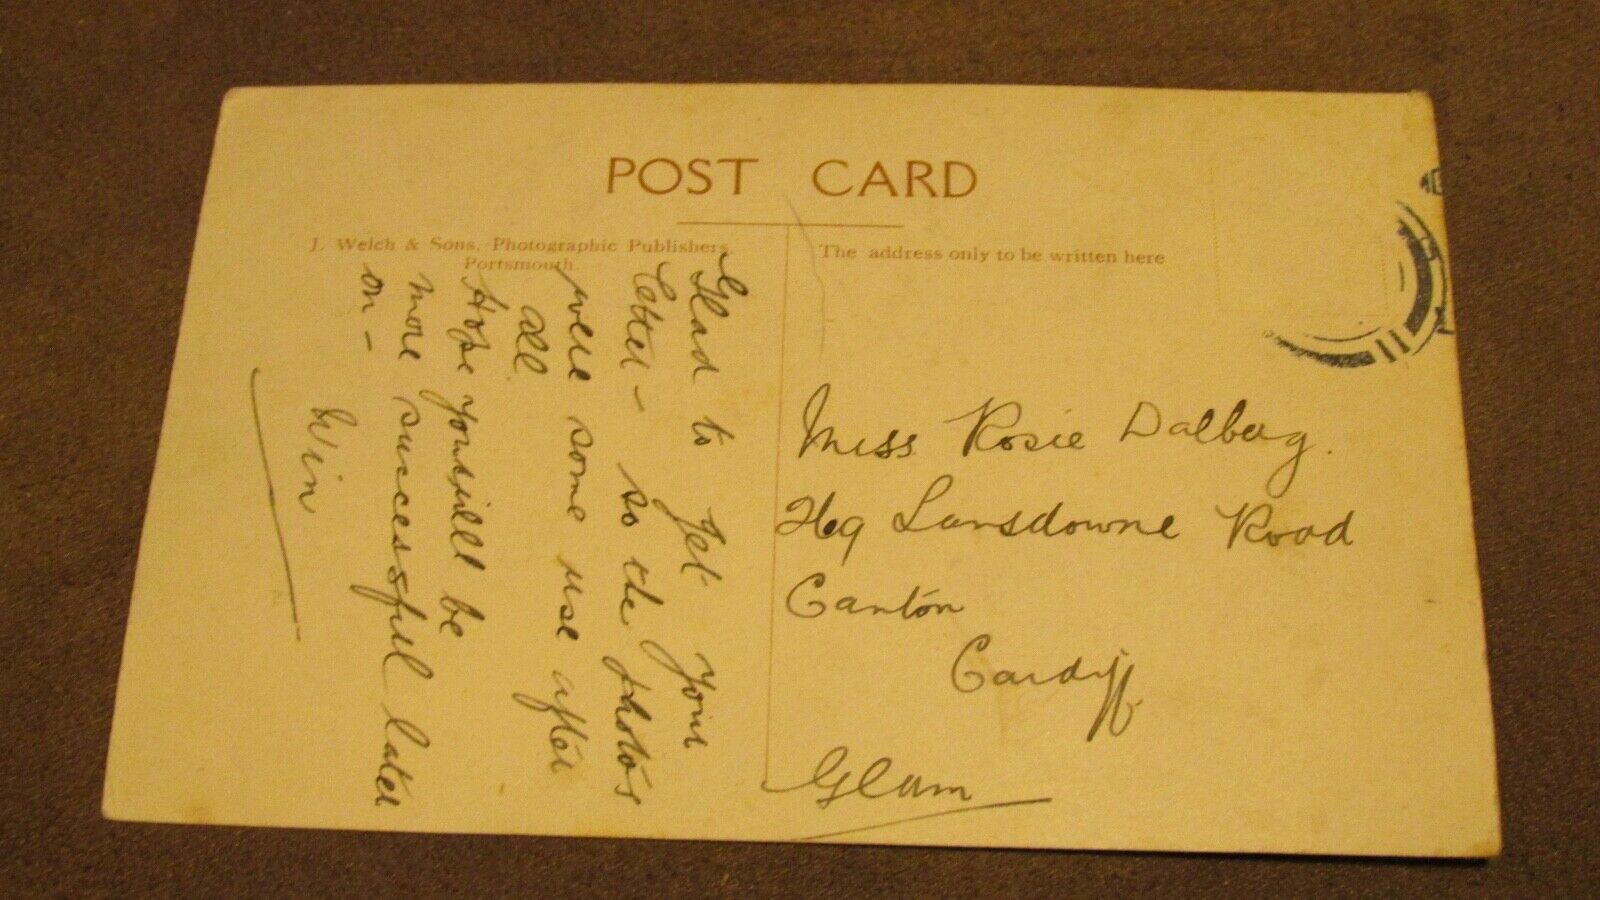 POST CARD
J. Welch & Sons, Photographic Publishers,
Portsmouth.
The address only to be written here
Glad to get your
letter - so the photos
were some use after
all.
Hope you will be
more successful later
on -
Win
Miss Rosie Dalberg.
269 Lansdowne Road
Canton
Cardiff
Glam